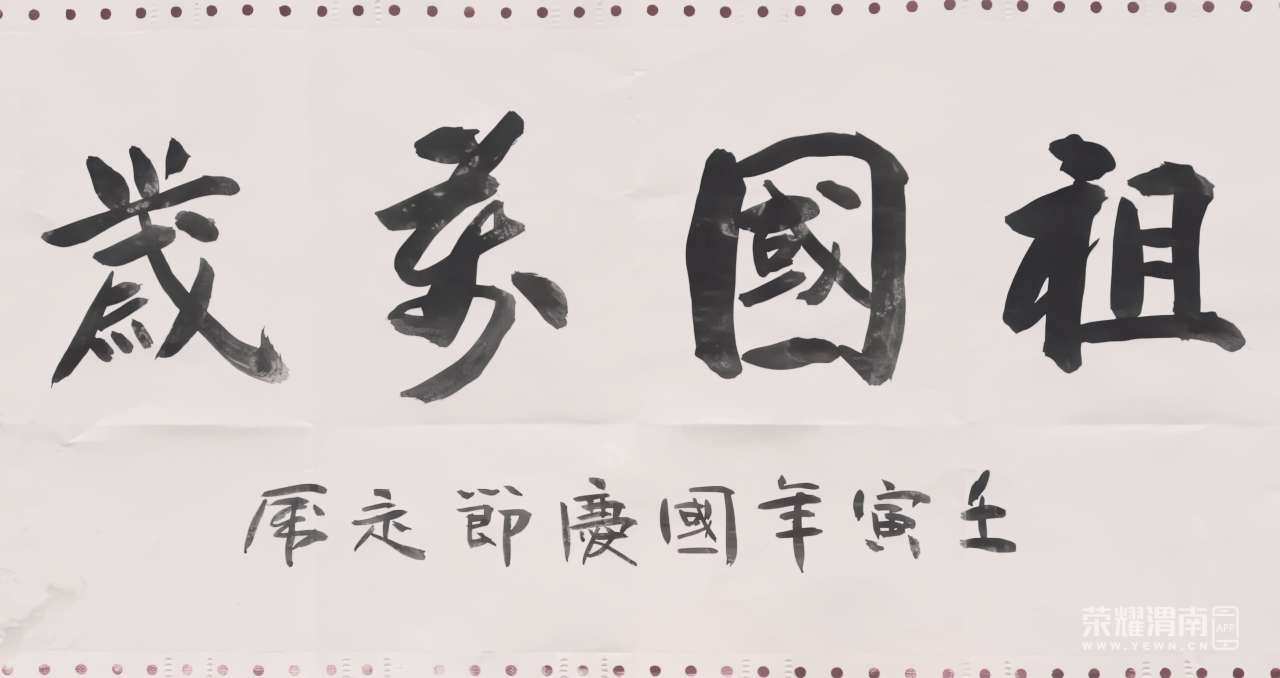 祖國萬歲
壬寅年國慶節
荣耀渭南 APP
WWW.YEWN.CN